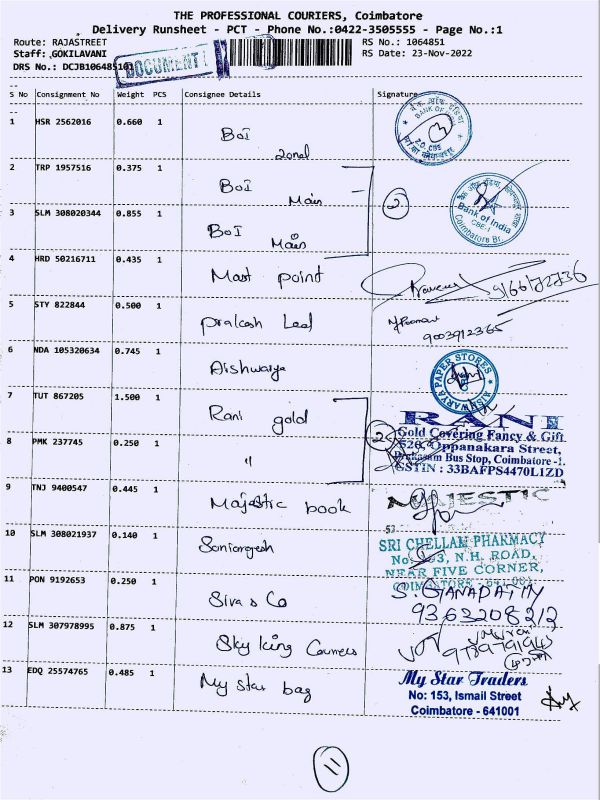 THE PROFESSIONAL COURIERS, Coimbatore
Delivery Runsheet - PCT - Phone No.:0422-3505555 - Page No.:1
Route: RAJASTREET
RS No.: 1064851
Staff: GOKILAVANI
RS Date: 23-Nov-2022
DRS No.: DCJB1064851
DOCUMENT
S No Consignment No Weight PCS Consignee Details Signature
1 HSR 2562016 0.660 1
BOI
zonal
BANK OF
2 TRP 1957516 0.375 1
BOI
Main
2
3 SLM 308020344 0.855 1
BOI
Main
Bank of India
Coimbatore Br.
4 HRD 50216711 0.435 1
Mast point
5 STY 822844 0.500 1
Prakash Lead
9003912365
6 NDA 105320634 0.745 1
Aishwarya
AISHWARYA PAPER STORES
7 TUT 867205 1.500 1
Rani gold
RANI
Gold Covering Fancy & Gift
8 PMK 237745 0.250 1
"
2
526, Oppanakara Street,
Prakasam Bus Stop, Coimbatore -1.
GSTIN : 33BAFPS4470L1ZD
9 TNJ 9400547 0.445 1
Majestic book
MAJESTIC
10 SLM 308021937 0.140 1
53
SRI CHELLAM PHARMACY
N.H. ROAD,
NEAR FIVE CORNER,
11 PON 9192653 0.250 1
Siva & Co
S. GANAPATHY
9363208212
12 SLM 307978995 0.875 1
Sky king Couriers
13 EDQ 25574765 0.485 1
My Star bag
My Star Traders
No: 153, Ismail Street
Coimbatore - 641001
11